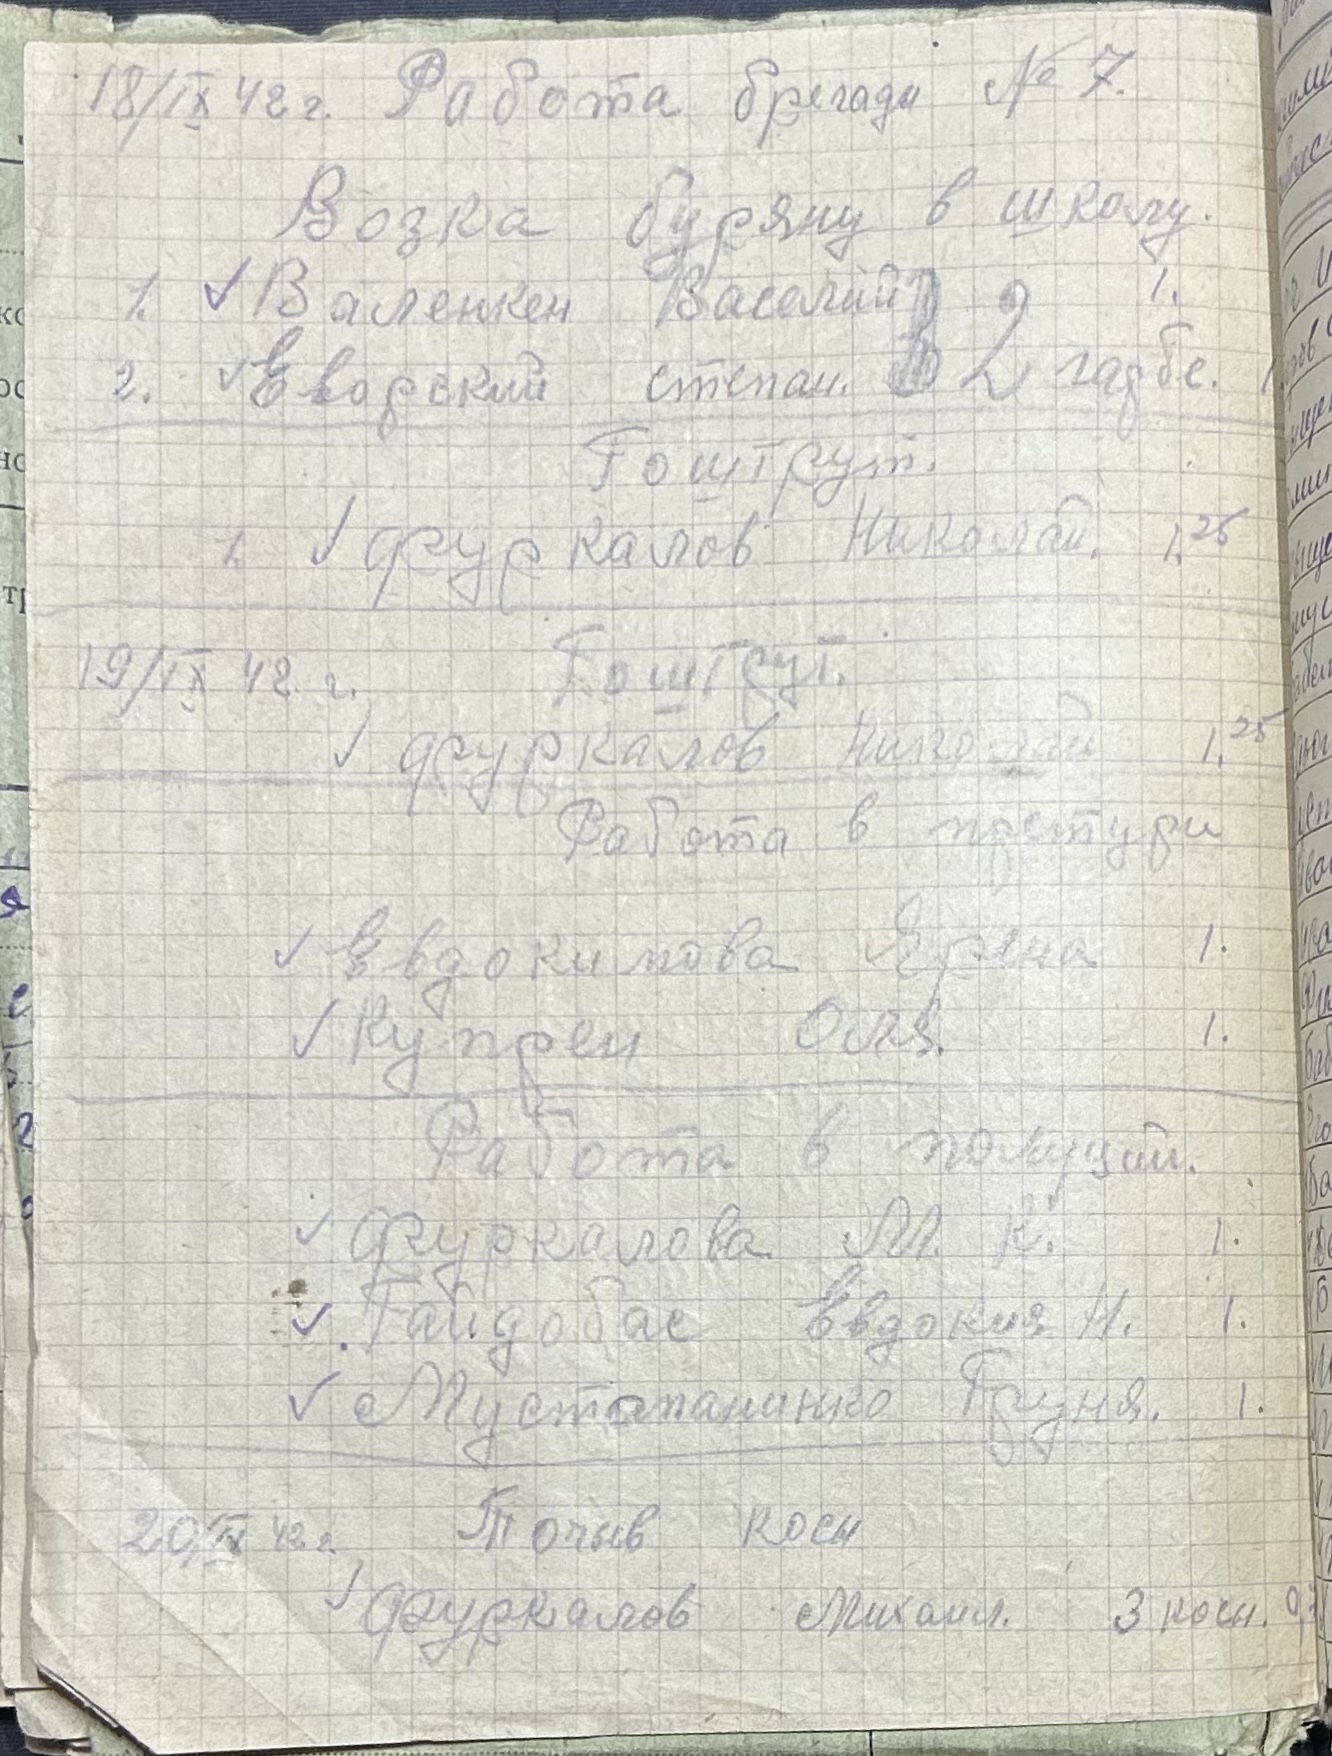 18/IX 42 г. Работа бригади № 7.
Возка буряну в школу.
1. ✓ Валенкен Васелий 2 1.
2. ✓ Еварский степан. В 2 гарбе. 1
Гоштрут.
1. ✓ Фуркалов Николай. 1.25
19/IX 42. г. Гоштрут.
✓ Фуркалов Николай 1.25
Работа в претури
✓ Евдокимова Ярена 1.
✓ Купреи Оля. 1.
Работа в полиций.
✓ Фуркалова М. К. 1.
✓ Гайдобас Евдокия Н. 1.
✓ Мустапаминко Груня. 1.
20/IX 42 г. Точыв коси
✓ Фуркалов Михаил. 3 коси.